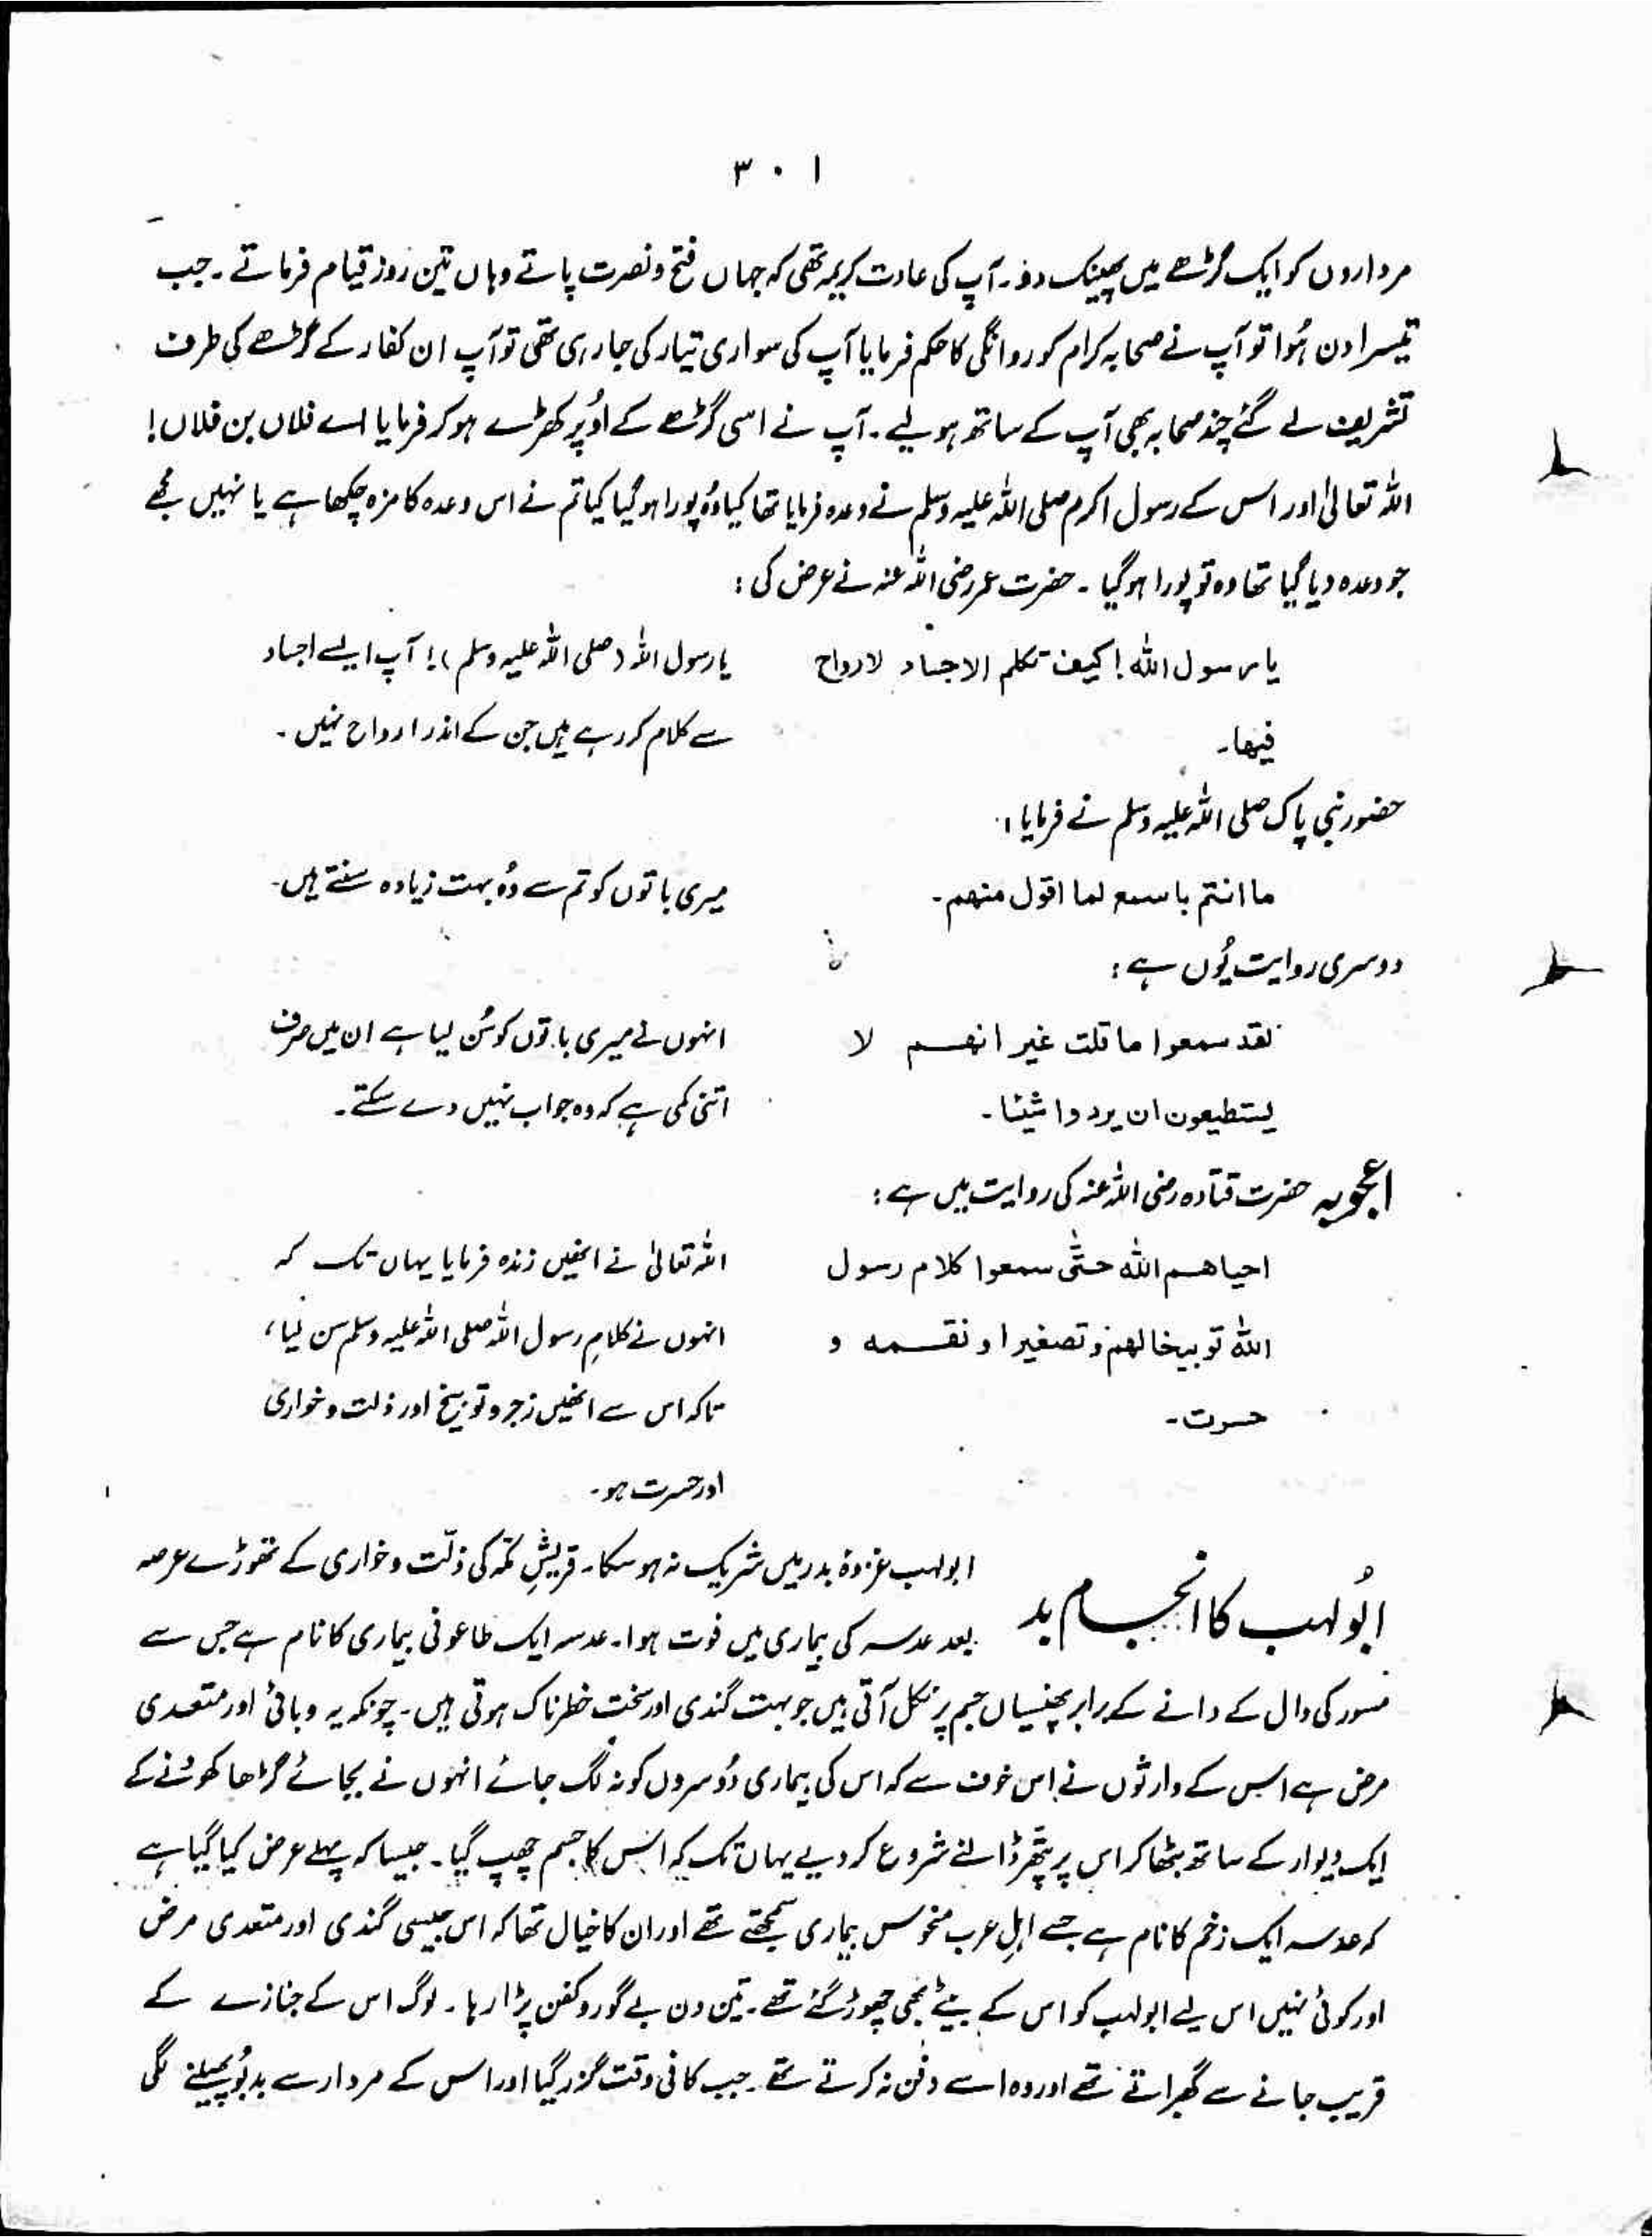 ٣٠١
مرداروں کو ایک گڑھے میں پھینک دو۔ آپ کی عادت کریمہ تھی کہ جہاں فتح و نصرت پاتے وہاں تین روز قیام فرماتے۔ جب
تیسرا دن ہُوا تو آپ نے صحابہ کرام کو روانگی کا حکم فرمایا آپ کی سواری تیار کی جا رہی تھی تو آپ ان کفار کے گڑھے کی طرف
تشریف لے گئے چند صحابہ بھی آپ کے ساتھ ہو لیے۔ آپ نے اسی گڑھے کے اوُپر کھڑے ہو کر فرمایا اے فلاں بن فلاں!
اللہ تعالیٰ اور اس کے رسول اکرم صلی اللہ علیہ وسلم نے وعدہ فرمایا تھا کیا وُہ پورا ہو گیا کیا تم نے اس وعدہ کا مزہ چکھا ہے یا نہیں مجھے
جو وعدہ دیا گیا تھا وہ تو پورا ہو گیا۔ حضرت عمر رضی اللہ عنہ نے عرض کی:
یا رسول اللہ! کیف تکلم الاجساد لا رواح
فیہا۔
یا رسول اللہ (صلی اللہ علیہ وسلم)! آپ ایسے اجساد
سے کلام کر رہے ہیں جن کے اندر ارواح نہیں۔
حضور نبی پاک صلی اللہ علیہ وسلم نے فرمایا:
ما انتم باسمع لما اقول منھم۔
میری باتوں کو تم سے وُہ بہت زیادہ سنتے ہیں۔
دوسری روایت یُوں ہے:
لقد سمعوا ما قلت غیر انھم لا
یستطیعون ان یردوا شیئا۔
انہوں نے میری باتوں کو سُن لیا ہے ان میں صرف
اتنی کمی ہے کہ وہ جواب نہیں دے سکتے۔
اعجوبہ حضرت قتادہ رضی اللہ عنہ کی روایت میں ہے:
احیاھم اللہ حتّٰی سمعوا کلام رسول
اللہ توبیخا لھم و تصغیرا و نقسمہ و
حسرت۔
اللہ تعالیٰ نے انھیں زندہ فرمایا یہاں تک کہ
انہوں نے کلامِ رسول اللہ صلی اللہ علیہ وسلم سن لیا،
تاکہ اس سے انھیں زجر و توبیخ اور ذلت و خواری
اور حسرت ہو۔
ابُولہب کا انجام بد
ابولہب غزوۂ بدر میں شریک نہ ہو سکا۔ قریشِ مکّہ کی ذلّت و خواری کے تھوڑے عرصہ
بعد عدسہ کی بیماری میں فوت ہوا۔ عدسہ ایک طاعونی بیماری کا نام ہے جس سے
مسور کی دال کے دانے کے برابر پھنسیاں جسم پر نکل آتی ہیں جو بہت گندی اور سخت خطرناک ہوتی ہیں۔ چونکہ یہ وبائی اور متعدی
مرض ہے اس کے وارثوں نے اس خوف سے کہ اس کی بیماری دُوسروں کو نہ لگ جائے انہوں نے بجائے گڑھا کھودنے کے
ایک دیوار کے ساتھ بٹھا کر اس پر پتّھر ڈالنے شروع کر دیے یہاں تک کہ اس کا جسم چھپ گیا۔ جیسا کہ پہلے عرض کیا گیا ہے
کہ عدسہ ایک زخم کا نام ہے جسے اہلِ عرب منحوس بیماری سمجھتے تھے اور ان کا خیال تھا کہ اس جیسی گندی اور متعدی مرض
اور کوئی نہیں اس لیے ابولہب کو اس کے بیٹے بھی چھوڑ گئے تھے۔ تین دن بے گور و کفن پڑا رہا۔ لوگ اس کے جنازے کے
قریب جانے سے گھبراتے تھے اور وہ اسے دفن نہ کرتے تھے۔ جب کافی وقت گزر گیا اور اس کے مردار سے بدبُو پھیلنے لگی